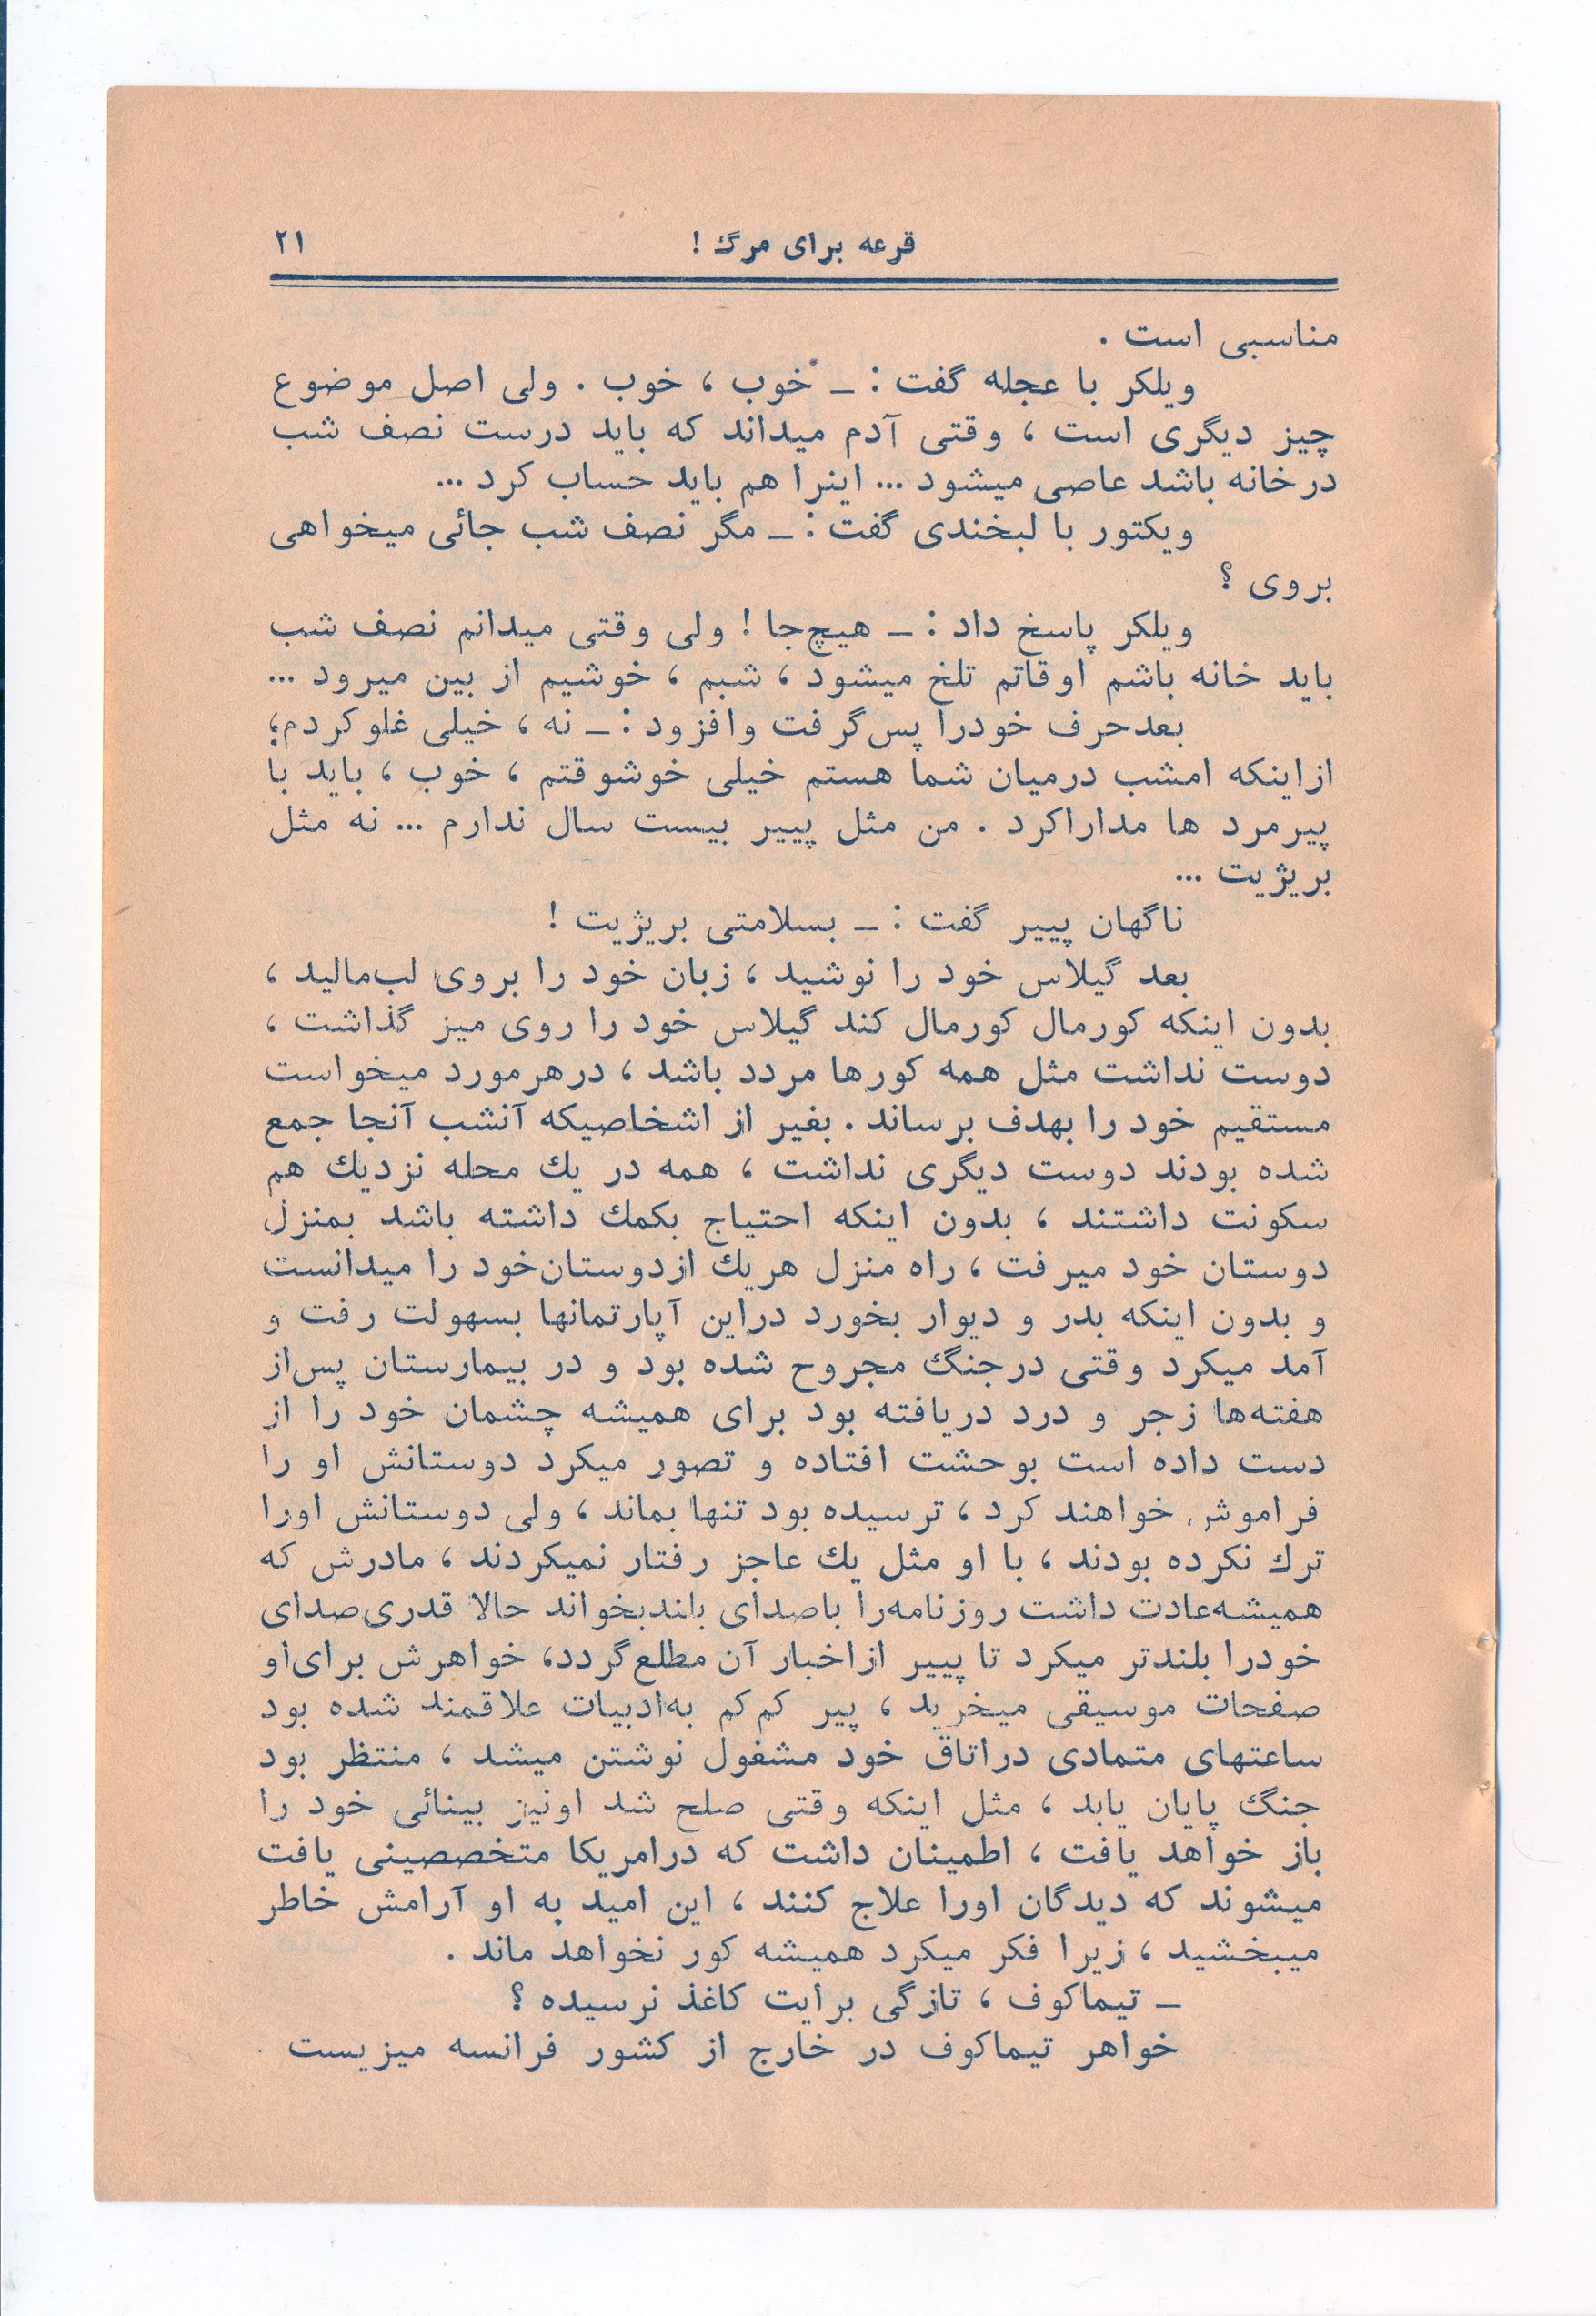 قرعه برای مرگ ! ۲۱
مناسبی است .
ویلکر با عجله گفت : ــ خوب ، خوب . ولی اصل موضوع
چیز دیگری است ، وقتی آدم میداند که باید درست نصف شب
درخانه باشد عاصی میشود ... اینرا هم باید حساب کرد ...
ویکتور با لبخندی گفت : ــ مگر نصف شب جائی میخواهی
بروی ؟
ویلکر پاسخ داد : ــ هیچ‌جا ! ولی وقتی میدانم نصف شب
باید خانه باشم اوقاتم تلخ میشود ، شبم ، خوشیم از بین میرود ...
بعدحرف خودرا پس‌گرفت وافزود : ــ نه ، خیلی غلوکردم؛
ازاینکه امشب درمیان شما هستم خیلی خوشوقتم ، خوب ، باید با
پیرمرد ها مداراکرد . من مثل پییر بیست سال ندارم ... نه مثل
بریژیت ...
ناگهان پییر گفت : ــ بسلامتی بریژیت !
بعد گیلاس خود را نوشید ، زبان خود را بروی لب‌مالید ،
بدون اینکه کورمال کورمال کند گیلاس خود را روی میز گذاشت ،
دوست نداشت مثل همه کورها مردد باشد ، درهرمورد میخواست
مستقیم خود را بهدف برساند . بغیر از اشخاصیکه آنشب آنجا جمع
شده بودند دوست دیگری نداشت ، همه در یك محله نزدیك هم
سکونت داشتند ، بدون اینکه احتیاج بکمك داشته باشد بمنزل
دوستان خود میرفت ، راه منزل هریك ازدوستان‌خود را میدانست
و بدون اینکه بدر و دیوار بخورد دراین آپارتمانها بسهولت رفت و
آمد میکرد وقتی درجنگ مجروح شده بود و در بیمارستان پس‌از
هفته‌ها زجر و درد دریافته بود برای همیشه چشمان خود را از
دست داده است بوحشت افتاده و تصور میکرد دوستانش او را
فراموش خواهند کرد ، ترسیده بود تنها بماند ، ولی دوستانش اورا
ترك نکرده بودند ، با او مثل یك عاجز رفتار نمیکردند ، مادرش که
همیشه‌عادت داشت روزنامه‌را باصدای بلندبخواند حالا قدری‌صدای
خودرا بلندتر میکرد تا پییر ازاخبار آن مطلع‌گردد، خواهرش برای‌او
صفحات موسیقی میخرید ، پیر کم‌کم به‌ادبیات علاقمند شده بود
ساعتهای متمادی دراتاق خود مشغول نوشتن میشد ، منتظر بود
جنگ پایان یابد ، مثل اینکه وقتی صلح شد اونیز بینائی خود را
باز خواهد یافت ، اطمینان داشت که درامریکا متخصصینی یافت
میشوند که دیدگان اورا علاج کنند ، این امید به او آرامش خاطر
میبخشید ، زیرا فکر میکرد همیشه کور نخواهد ماند .
ــ تیماکوف ، تازگی برایت کاغذ نرسیده ؟
خواهر تیماکوف در خارج از کشور فرانسه میزیست